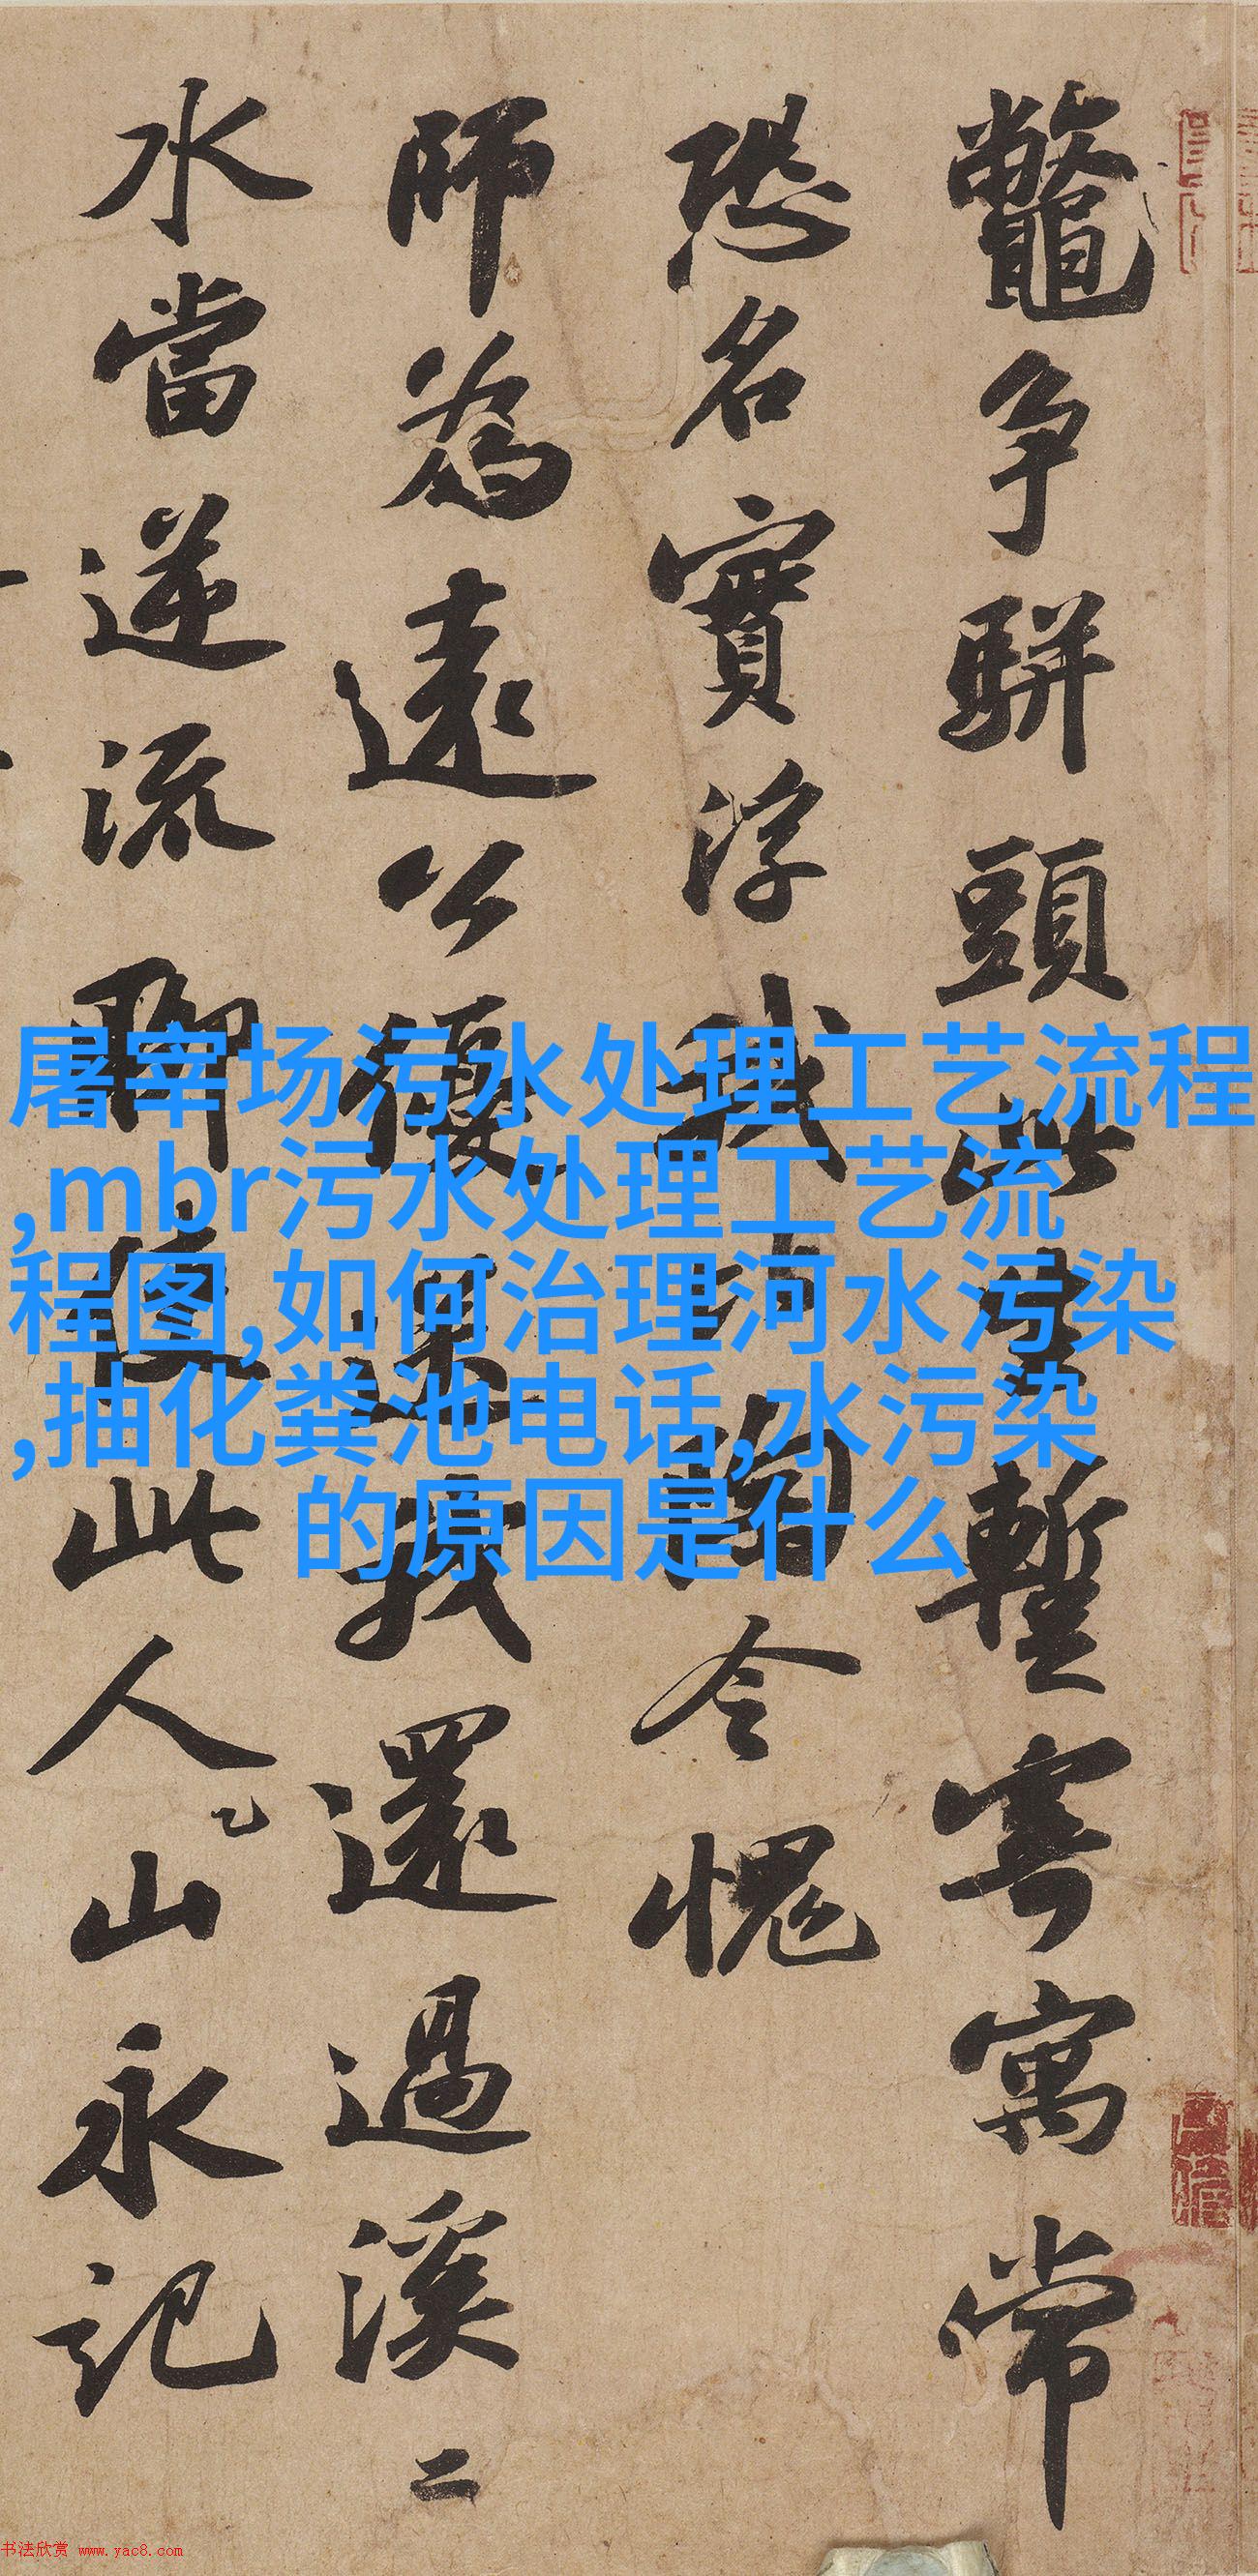 鼈争駢頭此生暫寄寓常
恐名實浮我
令愧
師為遠公優
我還過溪二
水當逆流聊
此人人山永記
屠宰场污水处理工艺流程
,mbr污水处理工艺流
程图,如何治理河水污染
,抽化粪池电话,水污染
的原因是什么
书法欣赏 www.yac8.com